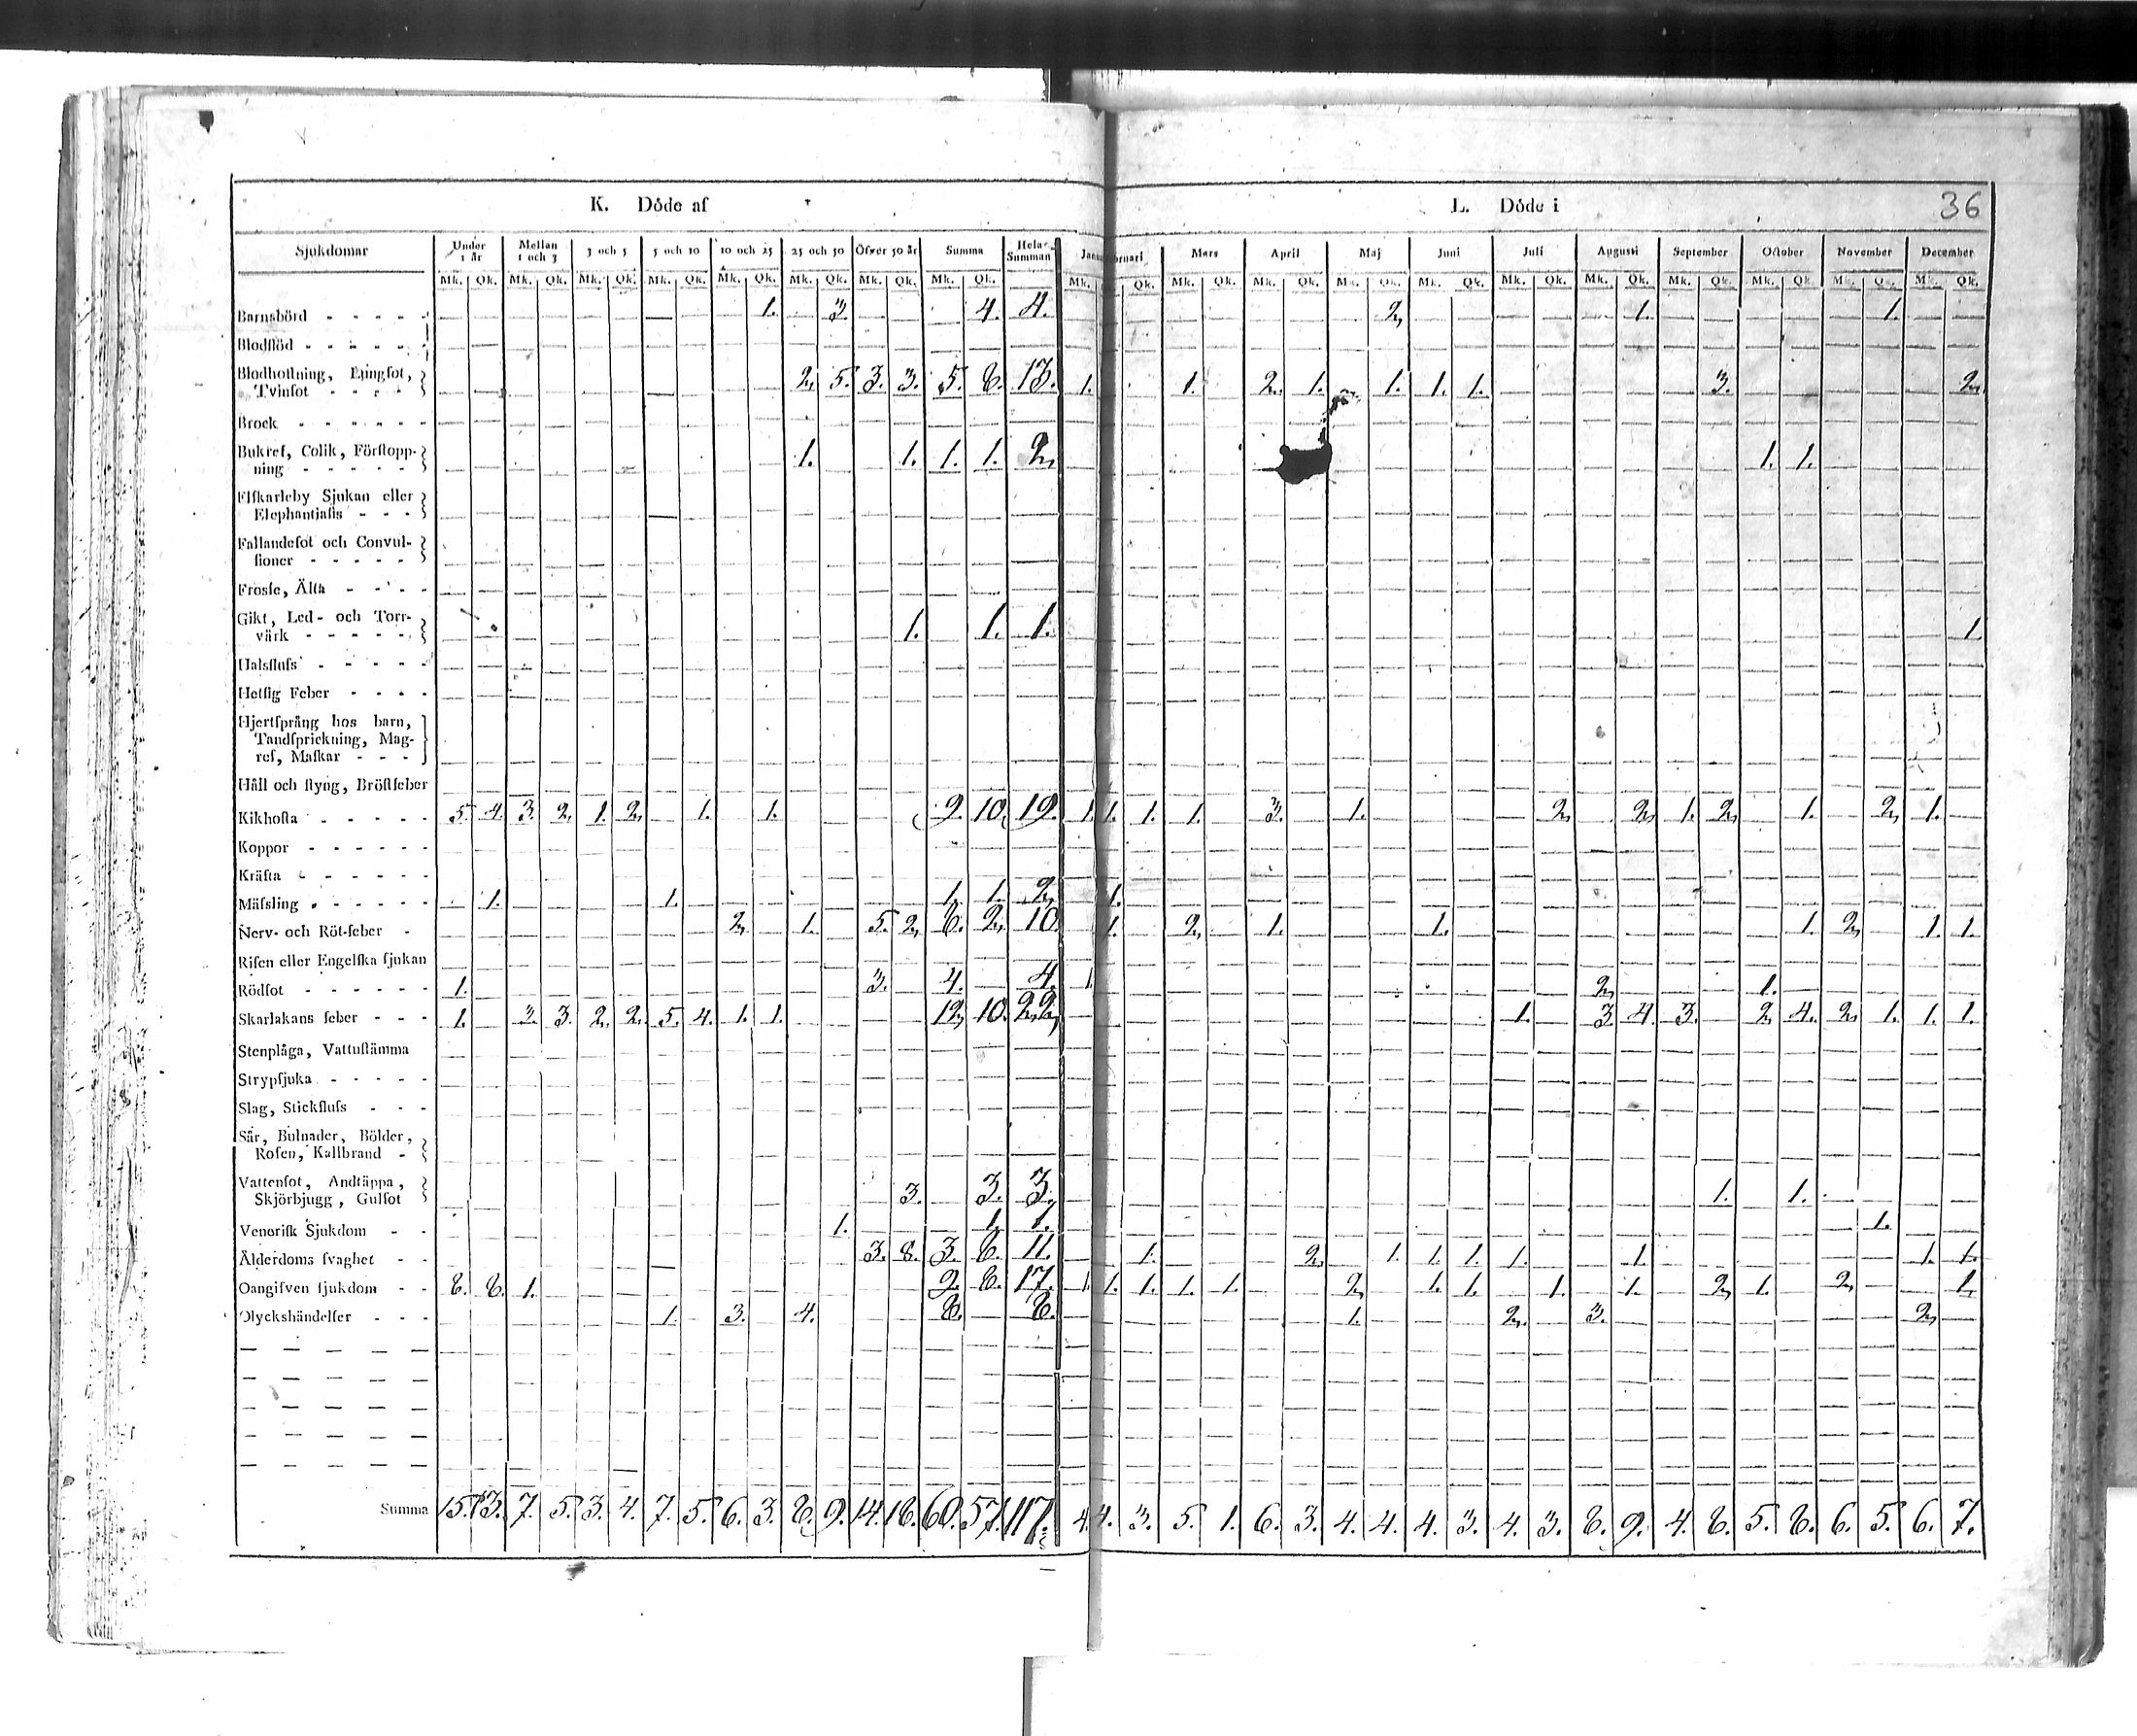 K. Döde af
L. Döde i
36
Sjukdomar Under 1 år Mellan 1 och 3 3 och 5 5 och 10 10 och 25 25 och 50 Öfver 50 år Summa Hela Summan Mars April Maj Juni Juli Augusti September October November December
Mk. Qk. Mk. Qk. Mk. Qk. Mk. Qk. Mk. Qk. Mk. Qk. Mk. Qk. Mk. Qk. Mk. Qk. Mk. Qk. Mk. Qk. Mk. Qk. Mk. Qk. Mk. Qk. Mk. Qk. Mk. Qk. Mk. Qk. Mk. Qk. Mk. Qk.
Barnsbörd 1. 3. 4. 4. 2 1. 1.
Blodflöd
Blodhostning, Lungsot,
Tvinsot 2 5. 3. 3. 5. 8. 13. 1. 1. 2. 1. 1. 1. 1. 3. 2
Brock
Bukref, Colik, Förstopp-
ning 1. 1. 1. 1. 2 1. 1.
Elfkarleby Sjukan eller
Elephantiasis
Fallandesot och Convul-
sioner
Frossa, Älta
Gikt, Led- och Torr-
värk 1. 1. 1. 1.
Halsfluss
Hetsig Feber
Hjertsprång hos barn,
Tandsprickning, Mag-
ref, Maskar
Håll och styng, Bröstfeber
Kikhosta 5. 4. 3. 2. 1. 2 1. 1. 9. 10. 19. 1. 1. 1. 1. 3. 1. 2 2 1. 2 1. 2 1.
Koppor
Kräfta
Mässling 1. 1. 1. 1. 2 1.
Nerv- och Röt-feber 2 1. 5. 2 8. 2 10 1. 2 1. 1. 1. 2 1. 1.
Risen eller Engelska sjukan
Rödsot 1. 3. 4. 4. 1 2 1.
Skarlakans feber 1. 3. 3. 2. 2. 5. 4. 1. 1. 12 10. 22 1. 3. 4. 3. 2 4. 2 1. 1. 1.
Stenplåga, Vattustämma
Strypsjuka
Slag, Stickfluss
Sår, Bulnader, Bölder,
Rosen, Kallbrand
Vattensot, Andtäppa,
Skjörbjugg, Gulsot 3. 3. 3. 1. 1.
Venerisk Sjukdom 1. 1. 1. 1.
Ålderdoms svaghet 3. 8. 3. 8. 11. 1. 2 1. 1. 1. 1. 1. 1. 1.
Oangifven sjukdom 8. 8. 1. 9. 8. 17. 1. 1. 1. 1. 1. 2 1. 1. 1. 1. 2 1. 2 1.
Olyckshändelser 1. 3. 4. 8. 8. 1. 2. 3. 2
Summa 15. 13. 7. 5. 3. 4. 7. 5. 6. 3. 8. 9. 14. 18. 60. 57. 117. 4. 4. 3. 5. 1. 6. 3. 4. 4. 4. 3. 4. 3. 8. 9. 4. 8. 5. 8. 6. 5. 6. 7.